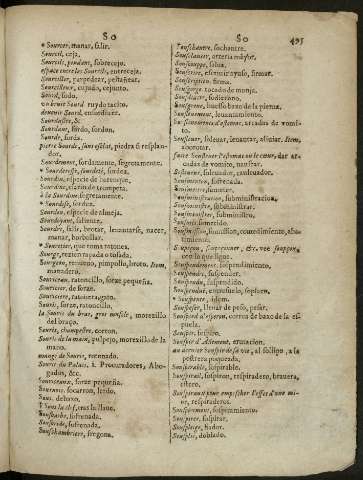 SO
* Sourcer, manar, salir.
Sourcil, ceja.
Sourcils, pendant, sobrecejo.
espace entre les Sourcils, entreceja.
Sourciller, parpedear, pestañear.
Sourcilleux, cejudo, cejunto.
Sourd, sordo.
un bruit Sourd, ruydo tacito.
devenir Sourd, ensordecer.
Sourdastre, &
Sourdaut, sordo, sordon.
Sourde, sorda.
pierre Sourde, sans esclat, piedra si resplandor.
Sourdement, sordamente, segretamente.
* Sourderesse, surdité, sordez.
Sourdin, especie de
Sourdine, clarin de trompeta.
à la Sourdine, segretamente.
* Sourdisse, sordez.
Sourdon, especie de almeja.
Sourdoyant, saliente.
Sourdre, salir, brotar, levantarse, nacer, manar, borbollar.
* Souretier, que toma ratones.
Sourge, rezien rapada o tosada.
Sourgeon, renuevo, pimpollo, broto. Item, manadero.
Souriceau, ratoncillo, sorze pequeña.
Souricier, de sorze.
Souriciere, ratonera
Souris, sorze, ratoncillo.
la Souris du bras, gros muscle, morezillo del braço.
Souris, champestre, corton.
Souris de la main, pulpejo, morezillo de la mano.
mangé de Souris, ratonado.
Souris du Palais, à Procuradores, Abogados, &c.
Sourisseau, sorze pequeña.
Sournois, socarron, lerdo.
Sous, debaxo.
* Sous la clef, tras la llaue.
Sousbarbe, sofrenada.
Sousbride, sofrenada.
Souschambriere, fregona.
SO
495
Souschantre, sochantre.
Sousclaviere, arteria mayor.
Souscouppe, salva.
Souscrire, escriuir ayuso, firmar.
Souscription, firma.
Sousgorge, tocado de monja.
Sousdiacre, sodiacono.
Sousgreve, huesso baxo de la pierna.
Souslevement, levantamiento.
Souslevements d'estomac, arcadas de vomito.
Souslever, solevar, levantar, aliviar. Item, aborotar.
faire Souslever l'estomac ou le cœur, dar arcadas de vomito, nausear.
Souslever, solevador, caudeador.
Sousmentonniere, sofrenada.
Sousmettre, someter.
Sousministration, subministracion.
Sousministrer, subministrar.
Sousmettre, someter.
Sousmis, sometido.
Sousmission, sumission, cometimiento, abatimiento.
Souspeçon, souspeçonner, &c. voe soupçon con lo que sigue.
Souspendement, suspendimiento.
Souspendre, suspender.
Souspendu, suspendido.
Souspendue, empeñuelo, sopluen.
* Souspente, idem.
Souspeser, llevar de peso, pesar.
Souspied d'esperon, correa de baxo de la espuela.
Souspir, suspiro.
Souspir d'Allemant, erutacion.
au dernier Souspir de sa vie, al sollço, a la postrera boqueada.
Souspirable, suspirable.
Souspirail, sospiron, respiradero, bravera, estero.
Souspirant pour empescher l'effet d'une mine, respiraderos.
Souspirement, suspiramiento.
Souspirer, suspirar.
Souspleier, fiador.
Souspler, doblado.